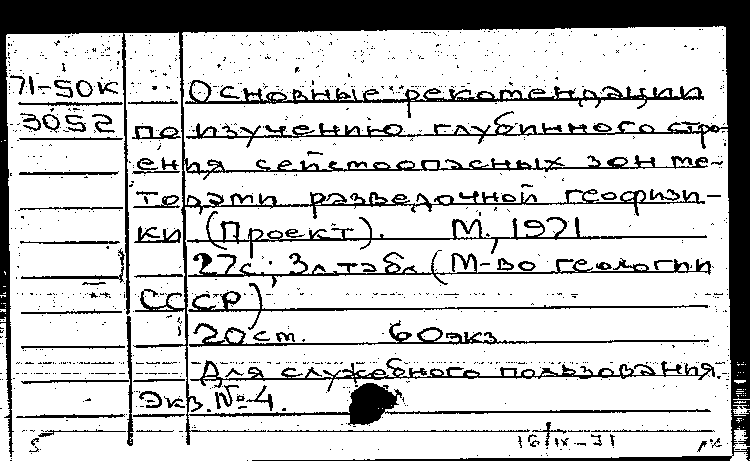 71-50к Основные рекомендации
3052 по изучению глубинного стро-
ения сейсмоопасных зон ме-
тодами разведочной геофизи-
ки (Проект). М., 1971
27с.; 3л.табл (М-во геологии
СССР)
20ст. 60экз
Для служебного пользования.
Экз. №4.
5 16/IX-71